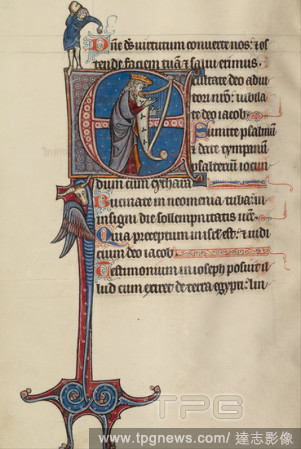 Dñe ds uirtutum conuerte nos: ⁊ os
tende faciem tuã ⁊ salui erimus.
Exultate deo adiu
tori nrõ: iubila
te deo iacob.
Sumite psalmũ
⁊ date tympanũ
psalterium iocun
dum cum cythara
Bucinate in neomenia tuba: in
insigni die sollempnitatis
Quia preceptum in isrl est: ⁊ iudi
cium deo iacob
Testimonium in ioseph posuit il
lud cum exiret de terra egypti: lin
TPG
www.tpgnews.com / 達志影像